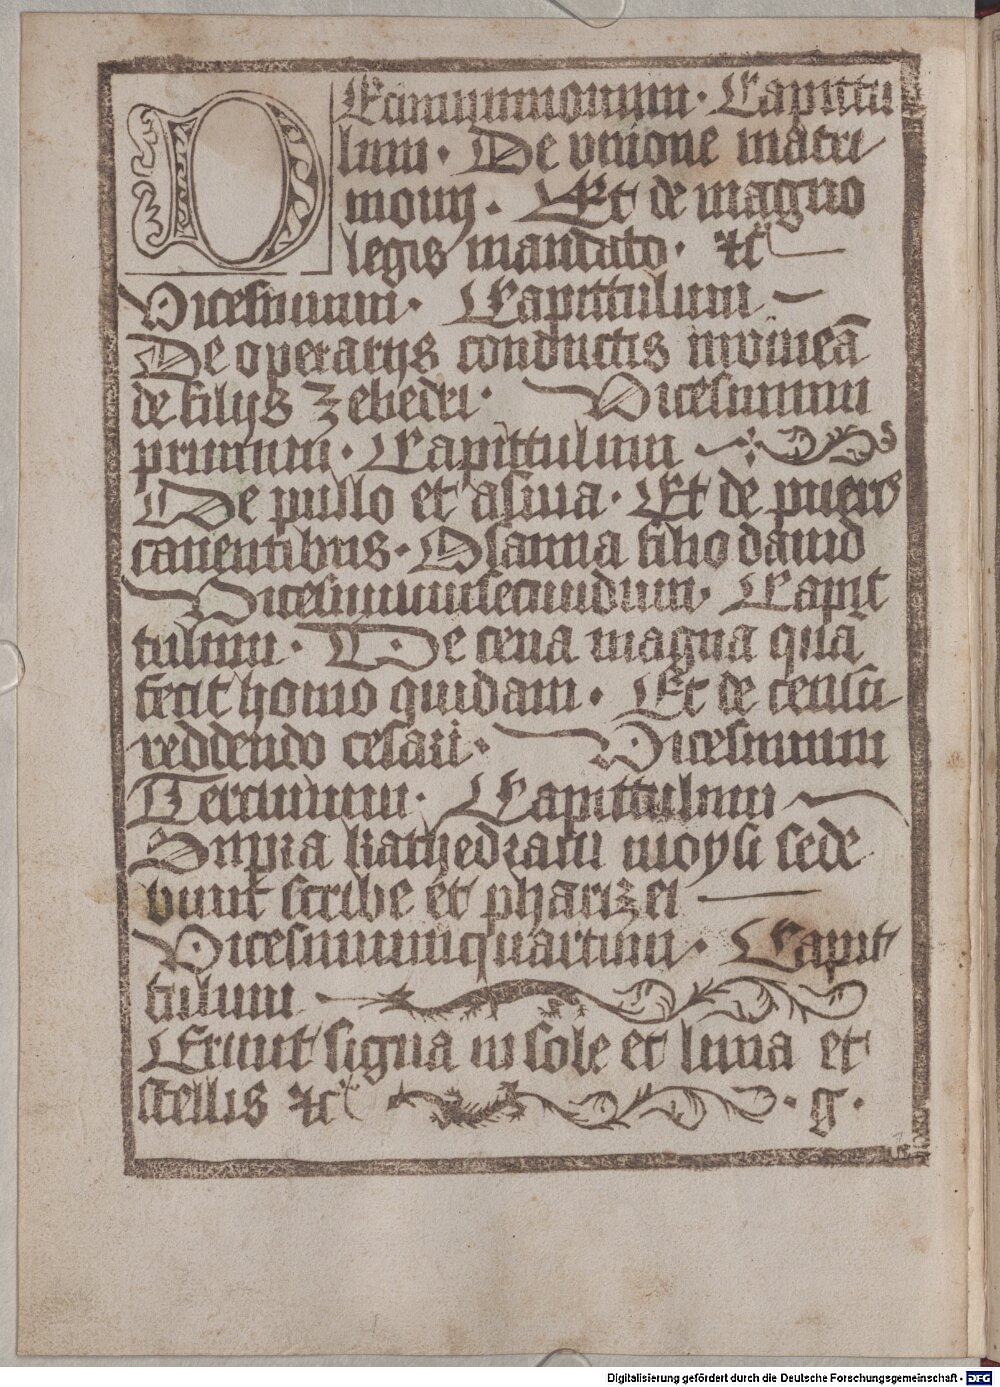 DEcimumnonum · Capittu
lum · De vnione matri
monij · Et de magno
legis mandato · ⁊cͣ
Vicesimum · Capittulum
De operarijs conductis in vineā
de filijs Zebedei · Vicesimum
primum · Capittulum
De pullo et asina · Et de pueris
canentibus · Osanna filio dauid
Vicesimumsecundum · Capit
tulum · De cena magna quā
fecit homo quidam · Et de censu
reddendo cesari · Vicesimum
Tercium · Capittulum
Supra kathedram moysi sede
bunt scribe et pharizei
Vicesimumquartum · Capit
tulum
Erunt signa in sole et luna et
stellis ⁊c · g ·
Digitalisierung gefördert durch die Deutsche Forschungsgemeinschaft - DFG